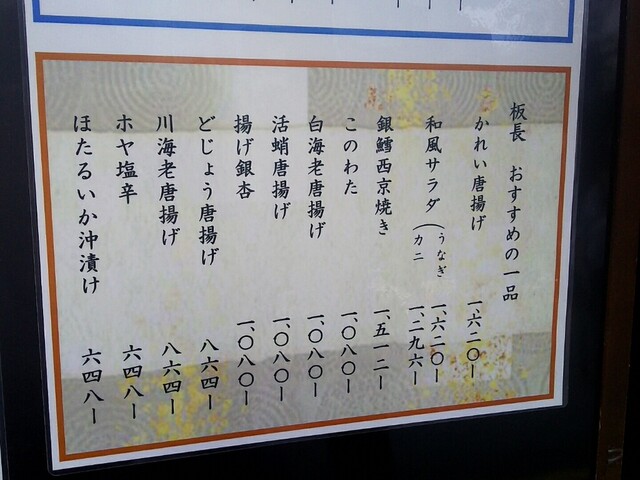 板長 おすすめの一品
かれい唐揚げ 一、六二〇ー
和風サラダ(うなぎ 一、六二〇ー
カニ 一、二九六ー
銀鱈西京焼き 一、五一二ー
このわた 一、〇八〇ー
白海老唐揚げ 一、〇八〇ー
活蛸唐揚げ 一、〇八〇ー
揚げ銀杏 一、〇八〇ー
どじょう唐揚げ 八六四ー
川海老唐揚げ 八六四ー
ホヤ塩辛 六四八ー
ほたるいか沖漬け 六四八ー